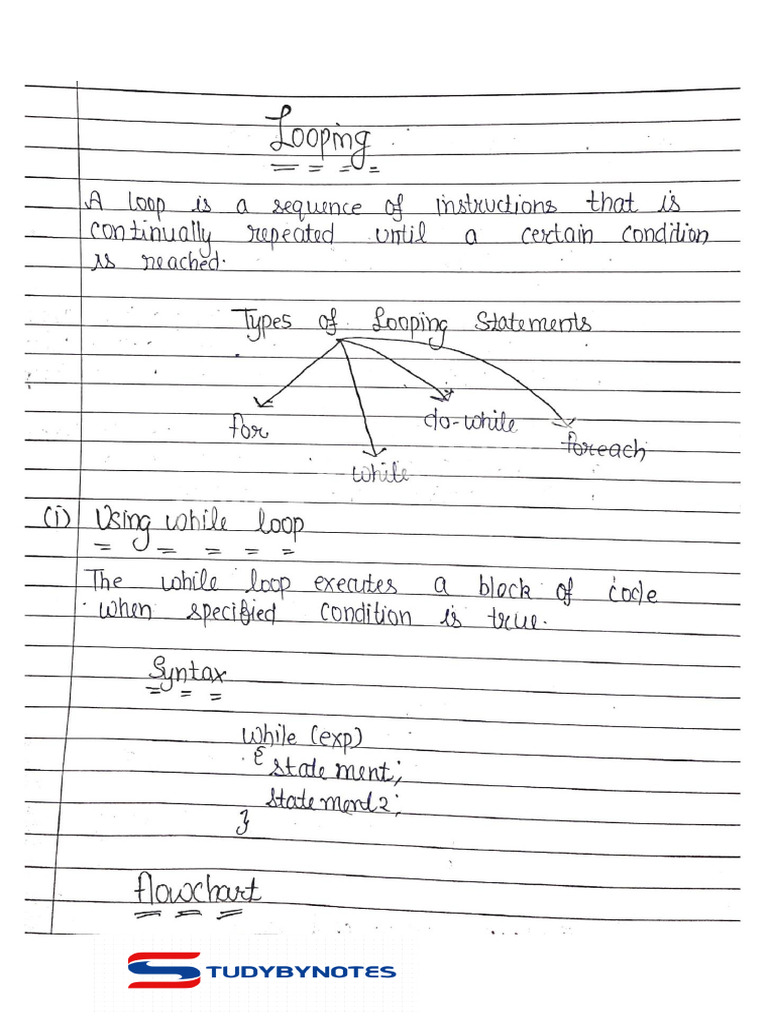 Looping
A loop is a sequence of instructions that is
continually repeated until a certain condition
is reached.
Types of Looping Statements
for
do-while
foreach
while
(i) Using while loop
The while loop executes a block of code
when specified condition is true.
Syntax
while (exp)
{ statement;
statement2;
}
flowchart
STUDYBYNOTES